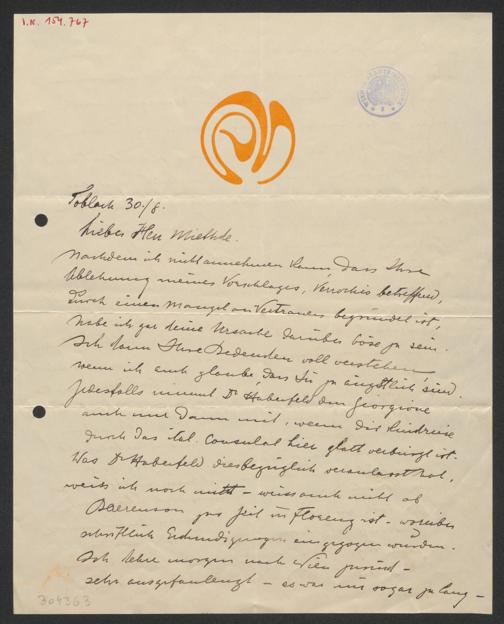 I.N. 154.767
Toblach 30./8.
Lieber Herr Miethke.
Nachdem ich nicht annehmen kann, dass Ihre
Ablehnung meines Vorschlages, Verrochio betreffend,
durch einen Mangel an Vertrauen begründet ist,
habe ich gar keine Ursache darüber böse zu sein.
Ich kann Ihre Bedenken voll verstehen
wenn ich auch glaube, dass Sie zu ängstlich sind.
Jedesfalls nimmt Dr Haberfeld den Georgione
auch nur dann mit, wenn die Rückreise
durch das ital. Consulat hier glatt verbürgt ist.
Was Dr Haberfeld diesbezüglich veranlasst hat,
weiss ich noch nicht – weiss auch nicht ob
Baerenson zur Zeit in Florenz ist – worüber
schriftlich Erkundigungen eingezogen wurden.
Ich kehre morgen nach Wien zurück –
sehr ausgefaulenzt – es war mir sogar zu lang –
304363